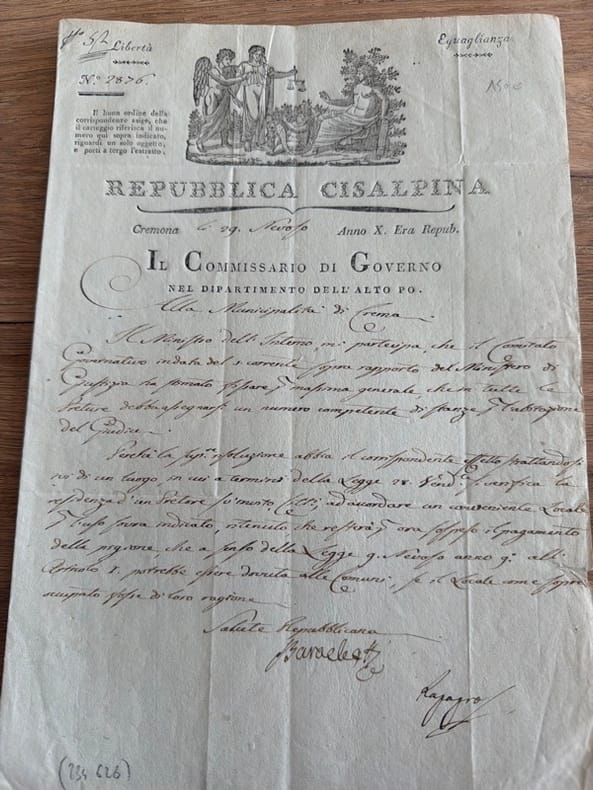 52
Libertà
Eguaglianza
N.º 2876
Il buon ordine della
corrispondenza esige, che
il carteggio riferisca il nu-
mero qui sopra indicato,
riguardi un solo oggetto,
e porti a tergo l'estratto.
REPUBBLICA CISALPINA
Cremona 29. Nevoso Anno X. Era Repub.
IL COMMISSARIO DI GOVERNO
NEL DIPARTIMENTO DELL'ALTO PO.
Alla Municipalità di Crema
Il Ministro dell'Interno, mi partecipa, che il Comitato
Governativo in data del corrente sopra rapporto del Ministero di
Giustizia ha fissare massima generale, che in tutte le
Preture debba assegnarsi un numero competente di stanze l'abitazione
del Giudice
Perchè la risoluzione abbia il corrispondente effetto trattandosi
di un luogo, in cui a termini della Legge 28. Vend. verifica la
residenza d'un Pretore invito ad accordare un conveniente Locale
l'uso sora indicato, ritenuto che resterà ora sospeso il pagamento
della pigione che a senso della Legge 9. Nevoso anno 9. all'
Articolo 1. potrebbe essere dovuta alle Comuni, se il Locale come sopra
occupato fosse di loro ragione
Salute Repubblicana
(234 626)